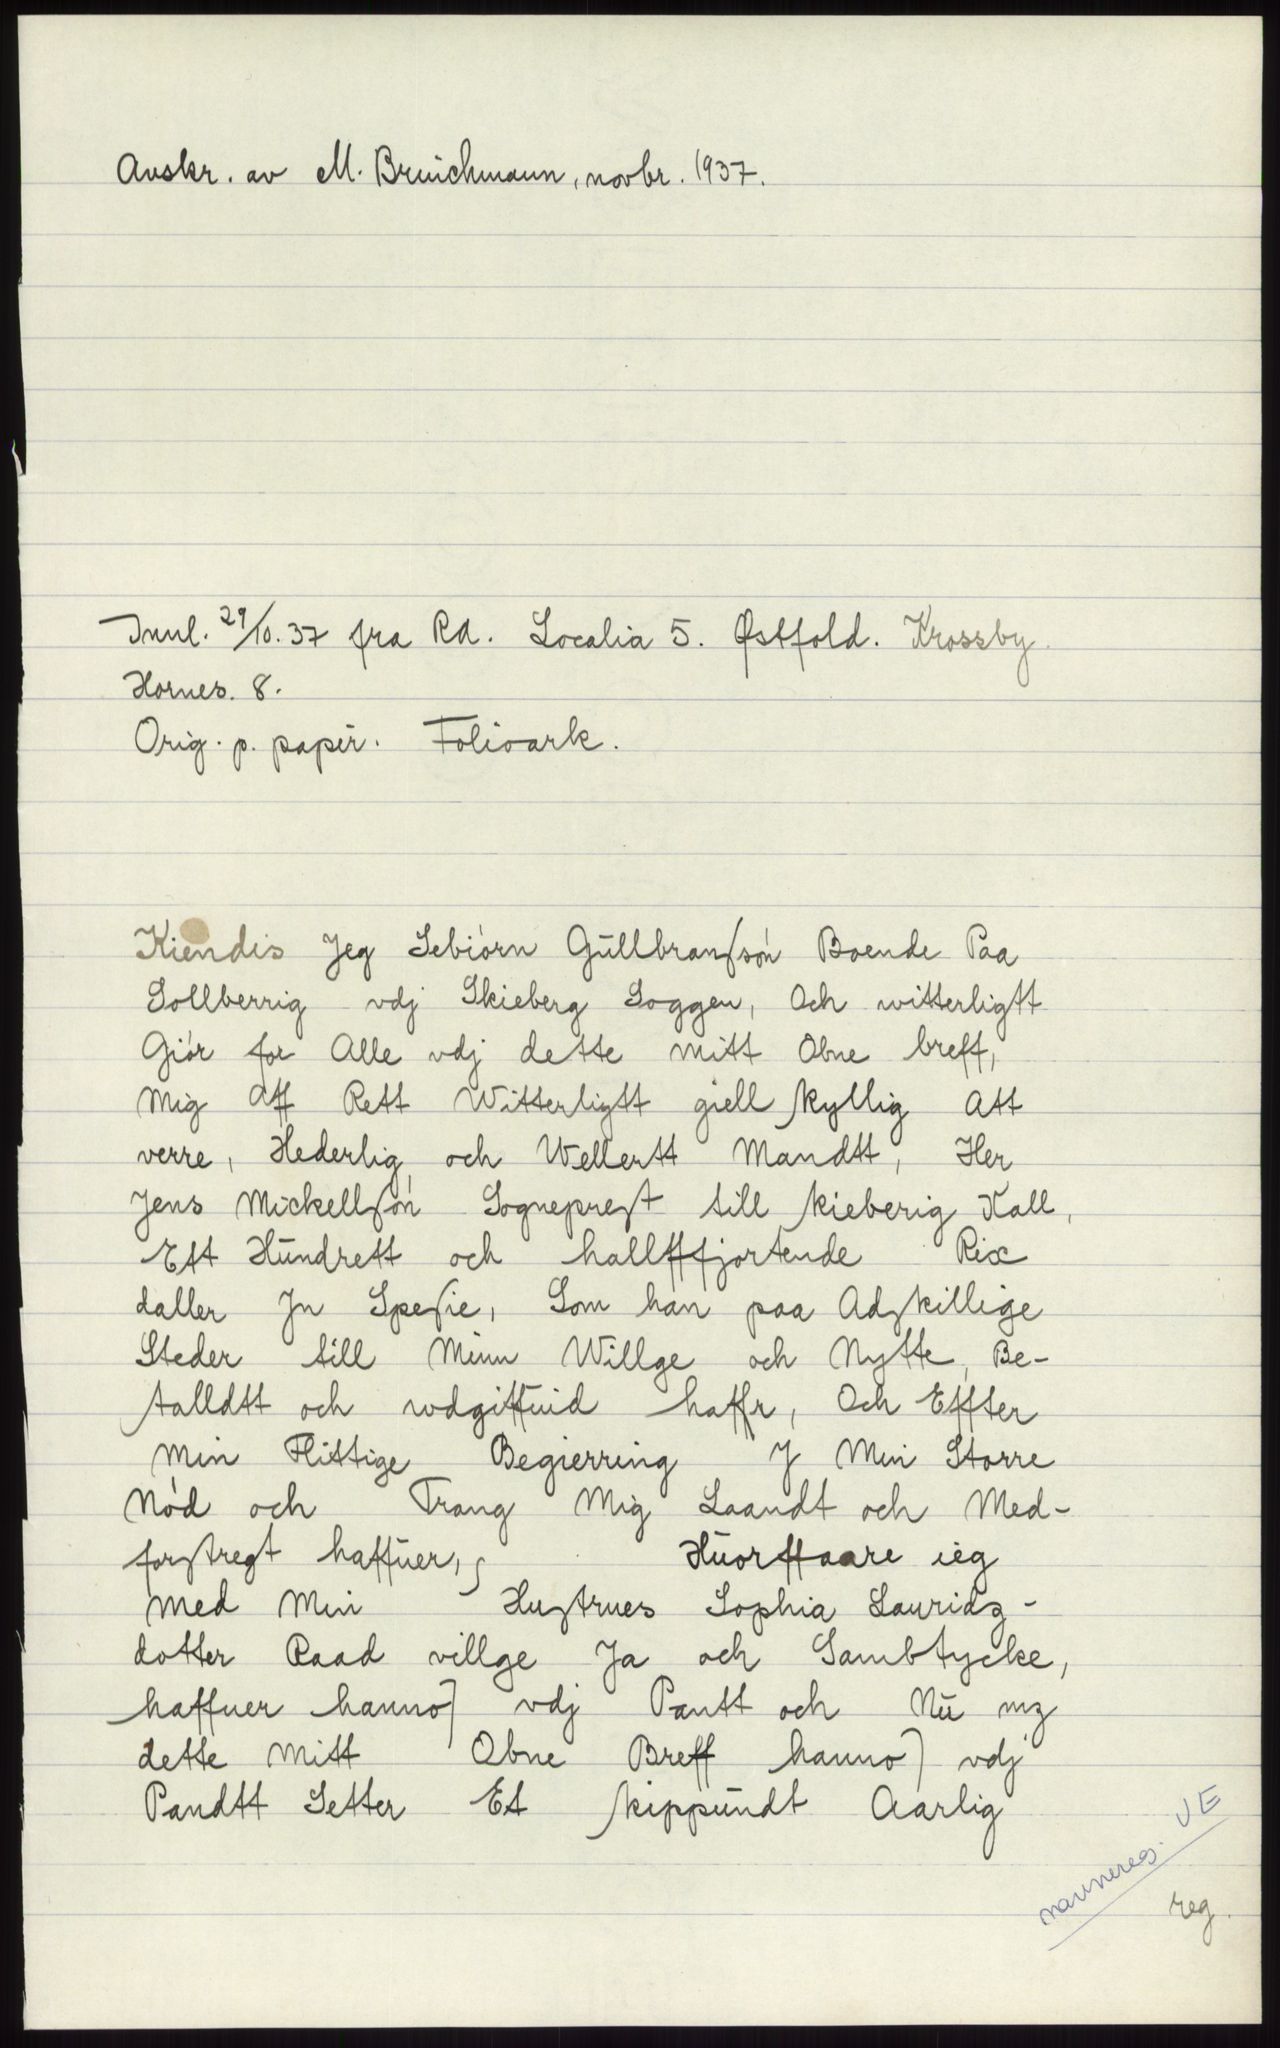 Avskr. av M. Bruichmann, novbr. 1937.
Innl. 29/10. 37 fra RA. Localia 5. Østfold. Krossby.
Hornes. 8.
Orig. p. papir. Folioark.
Kiendis Jeg Sebiórn Gúllbranſsón Boende Paa
Sollberrig vdj Skieberg Soggen, Och witterligtt
Giór for Alle vdj dette mitt Obne breff,
Mig Aff Rett Witterligtt giellſkyllig Att
verre, Hederlig och Wellertt Mandtt, Her
Jens Mickellſón Sognepreſt till ſkieberig Kall,
Ett Húndrett och hallffffjortende Rix
daller Jn Speſie, Som han paa Adſkillige
Steder till Minn Willge och Nytte, Be-
talldtt och wdgiffúid haffr, Och Effter
Min Flittige Begierring J Min Storre
Nód och Trang Mig Laandt och Med-
forſtregt haffúer, Húorffaare ieg
Med Min Huſtrues Sophia Lauridz-
dotter Raad villge Ja och Sambtycke,
haffuer hanno] vdj Pantt och Nú mz
dette Mitt Obne Breff hanno] vdj
Pandtt Setter Et ſkippúndt Aarlig
navnereg. UE
reg.